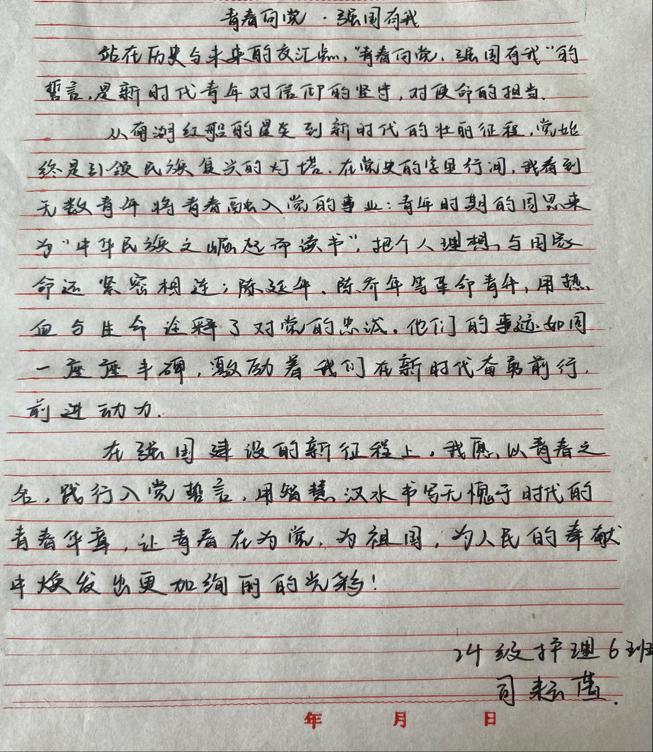 青春向党·强国有我
站在历史与未来的交汇点，“青春向党，强国有我”的
誓言，是新时代青年对信仰的坚守，对使命的担当。
从南湖红船的星火到新时代的壮丽征程，党始
终是引领民族复兴的灯塔。在党史的字里行间，我看到
无数青年将青春融入党的事业：青年时期的周恩来
为“中华民族之崛起而读书”，把个人理想与国家
命运紧密相连；陈延年、陈乔年等革命青年，用热
血与生命诠释了对党的忠诚。他们的事迹如同
一座座丰碑，激励着我们在新时代奋勇前行，
前进动力。
在强国建设的新征程上，我愿以青春之
名，践行入党誓言，用智慧汉水书写无愧于时代的
青春华章，让青春在为党、为祖国，为人民的奉献
中焕发出更加绚丽的光彩！
24级护理6班
司
年 月 日